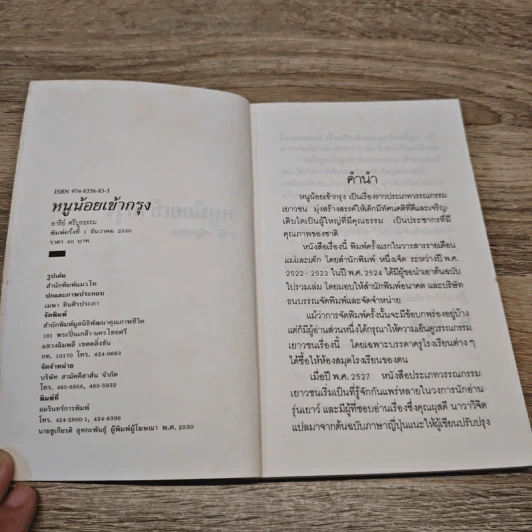 ISBN 974-8356-83-3
หนูน้อยเข้ากรุง
อารีย์ ศรีบูรธรรม
พิมพ์ครั้งที่ 1 ธันวาคม 2530
ราคา 40 บาท
รูปเล่ม
สำนักพิมพ์แมวโห
ปกและภาพประกอบ
เมษา ชินศิรประภา
จัดพิมพ์
สำนักพิมพ์มูลนิธิพัฒนาคุณภาพชีวิต
101 พระปิ่นเกล้า-นครไชยศรี
แขวงฉิมพลี เขตตลิ่งชัน
กท. 10170 โทร. 424-9663
จัดจำหน่าย
บริษัท สามัคคีสาส์น จำกัด
โทร. 465-8958, 465-5922
พิมพ์ที่
อมรินทร์การพิมพ์
โทร. 424-2800-1, 424-8396
นายชูเกียรติ อุทกะพันธุ์ ผู้พิมพ์ผู้โฆษณา พ.ศ. 2530
คำนำ
หนูน้อยเข้ากรุง เป็นเรื่องราวประเภทวรรณกรรม
เยาวชน มุ่งสร้างสรรค์ให้เด็กมีทัศนคติที่ดีและเจริญ
เติบโตเป็นผู้ใหญ่ที่มีคุณธรรม เป็นประชากรที่มี
คุณภาพของชาติ
หนังสือเรื่องนี้ พิมพ์ครั้งแรกในวารสารรายเดือน
แม่และเด็ก โดยสำนักพิมพ์ หนึ่งเจ็ด ระหว่างปี พ.ศ.
2522-2523 ในปี พ.ศ. 2524 ได้มีผู้ขอนำเอาต้นฉบับ
ไปรวมเล่ม โดยมอบให้สำนักพิมพ์อนาคต และบริษัท
ธนบรรณจัดพิมพ์และจัดจำหน่าย
แม้ว่าการจัดพิมพ์ครั้งนั้นจะมีข้อบกพร่องอยู่บ้าง
แต่ก็มีผู้อ่านส่วนหนึ่งได้กรุณาให้ความเอ็นดูวรรณกรรม
เยาวชนเรื่องนี้ โดยเฉพาะบรรดาครูโรงเรียนต่าง ๆ
ได้ซื้อให้ห้องสมุดโรงเรียนของตน
เมื่อปี พ.ศ. 2527 หนังสือประเภทวรรณกรรม
เยาวชนเริ่มเป็นที่รู้จักกันแพร่หลายในวงการนักอ่าน
รุ่นเยาว์ และมีผู้ที่ชอบอ่านเรื่องซึ่งคุณผุสดี นาวาวิจิต
แปลมาจากต้นฉบับภาษาญี่ปุ่นแนะให้ผู้เขียนปรับปรุง